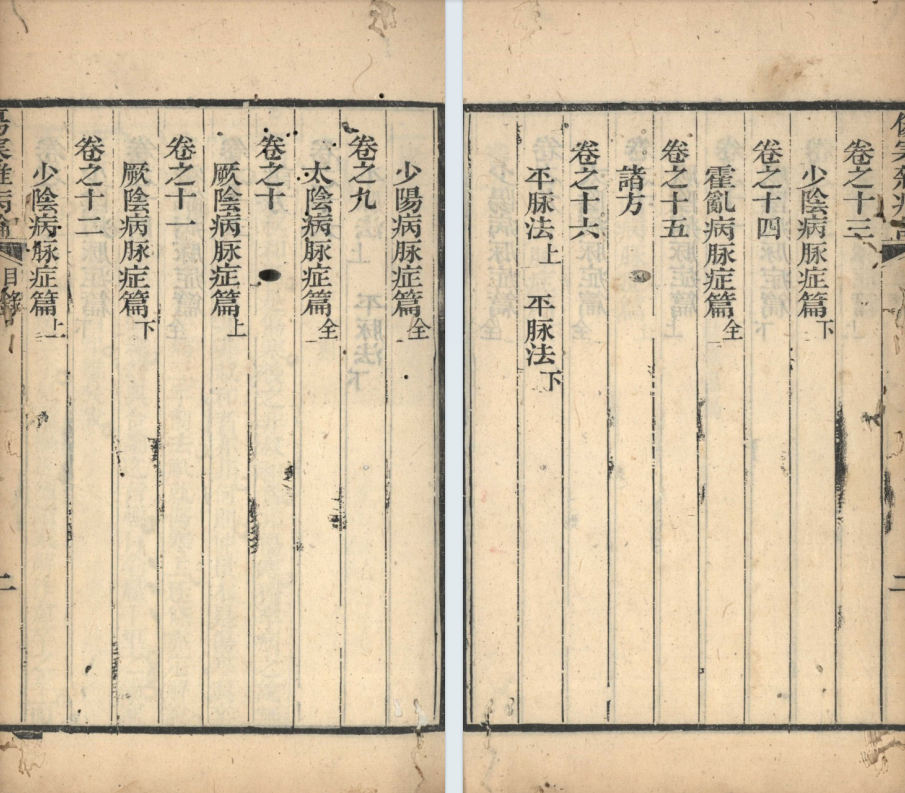 少陽病脉症篇全
卷之九
太陰病脉症篇全
卷之十
厥陰病脉症篇上
卷之十一
厥陰病脉症篇下
卷之十二
少陰病脉症篇上
傷寒雜病論 目錄 二
卷之十三
少陰病脉症篇下
卷之十四
霍亂病脉症篇全
卷之十五
諸方
卷之十六
平脉法上 平脉法下